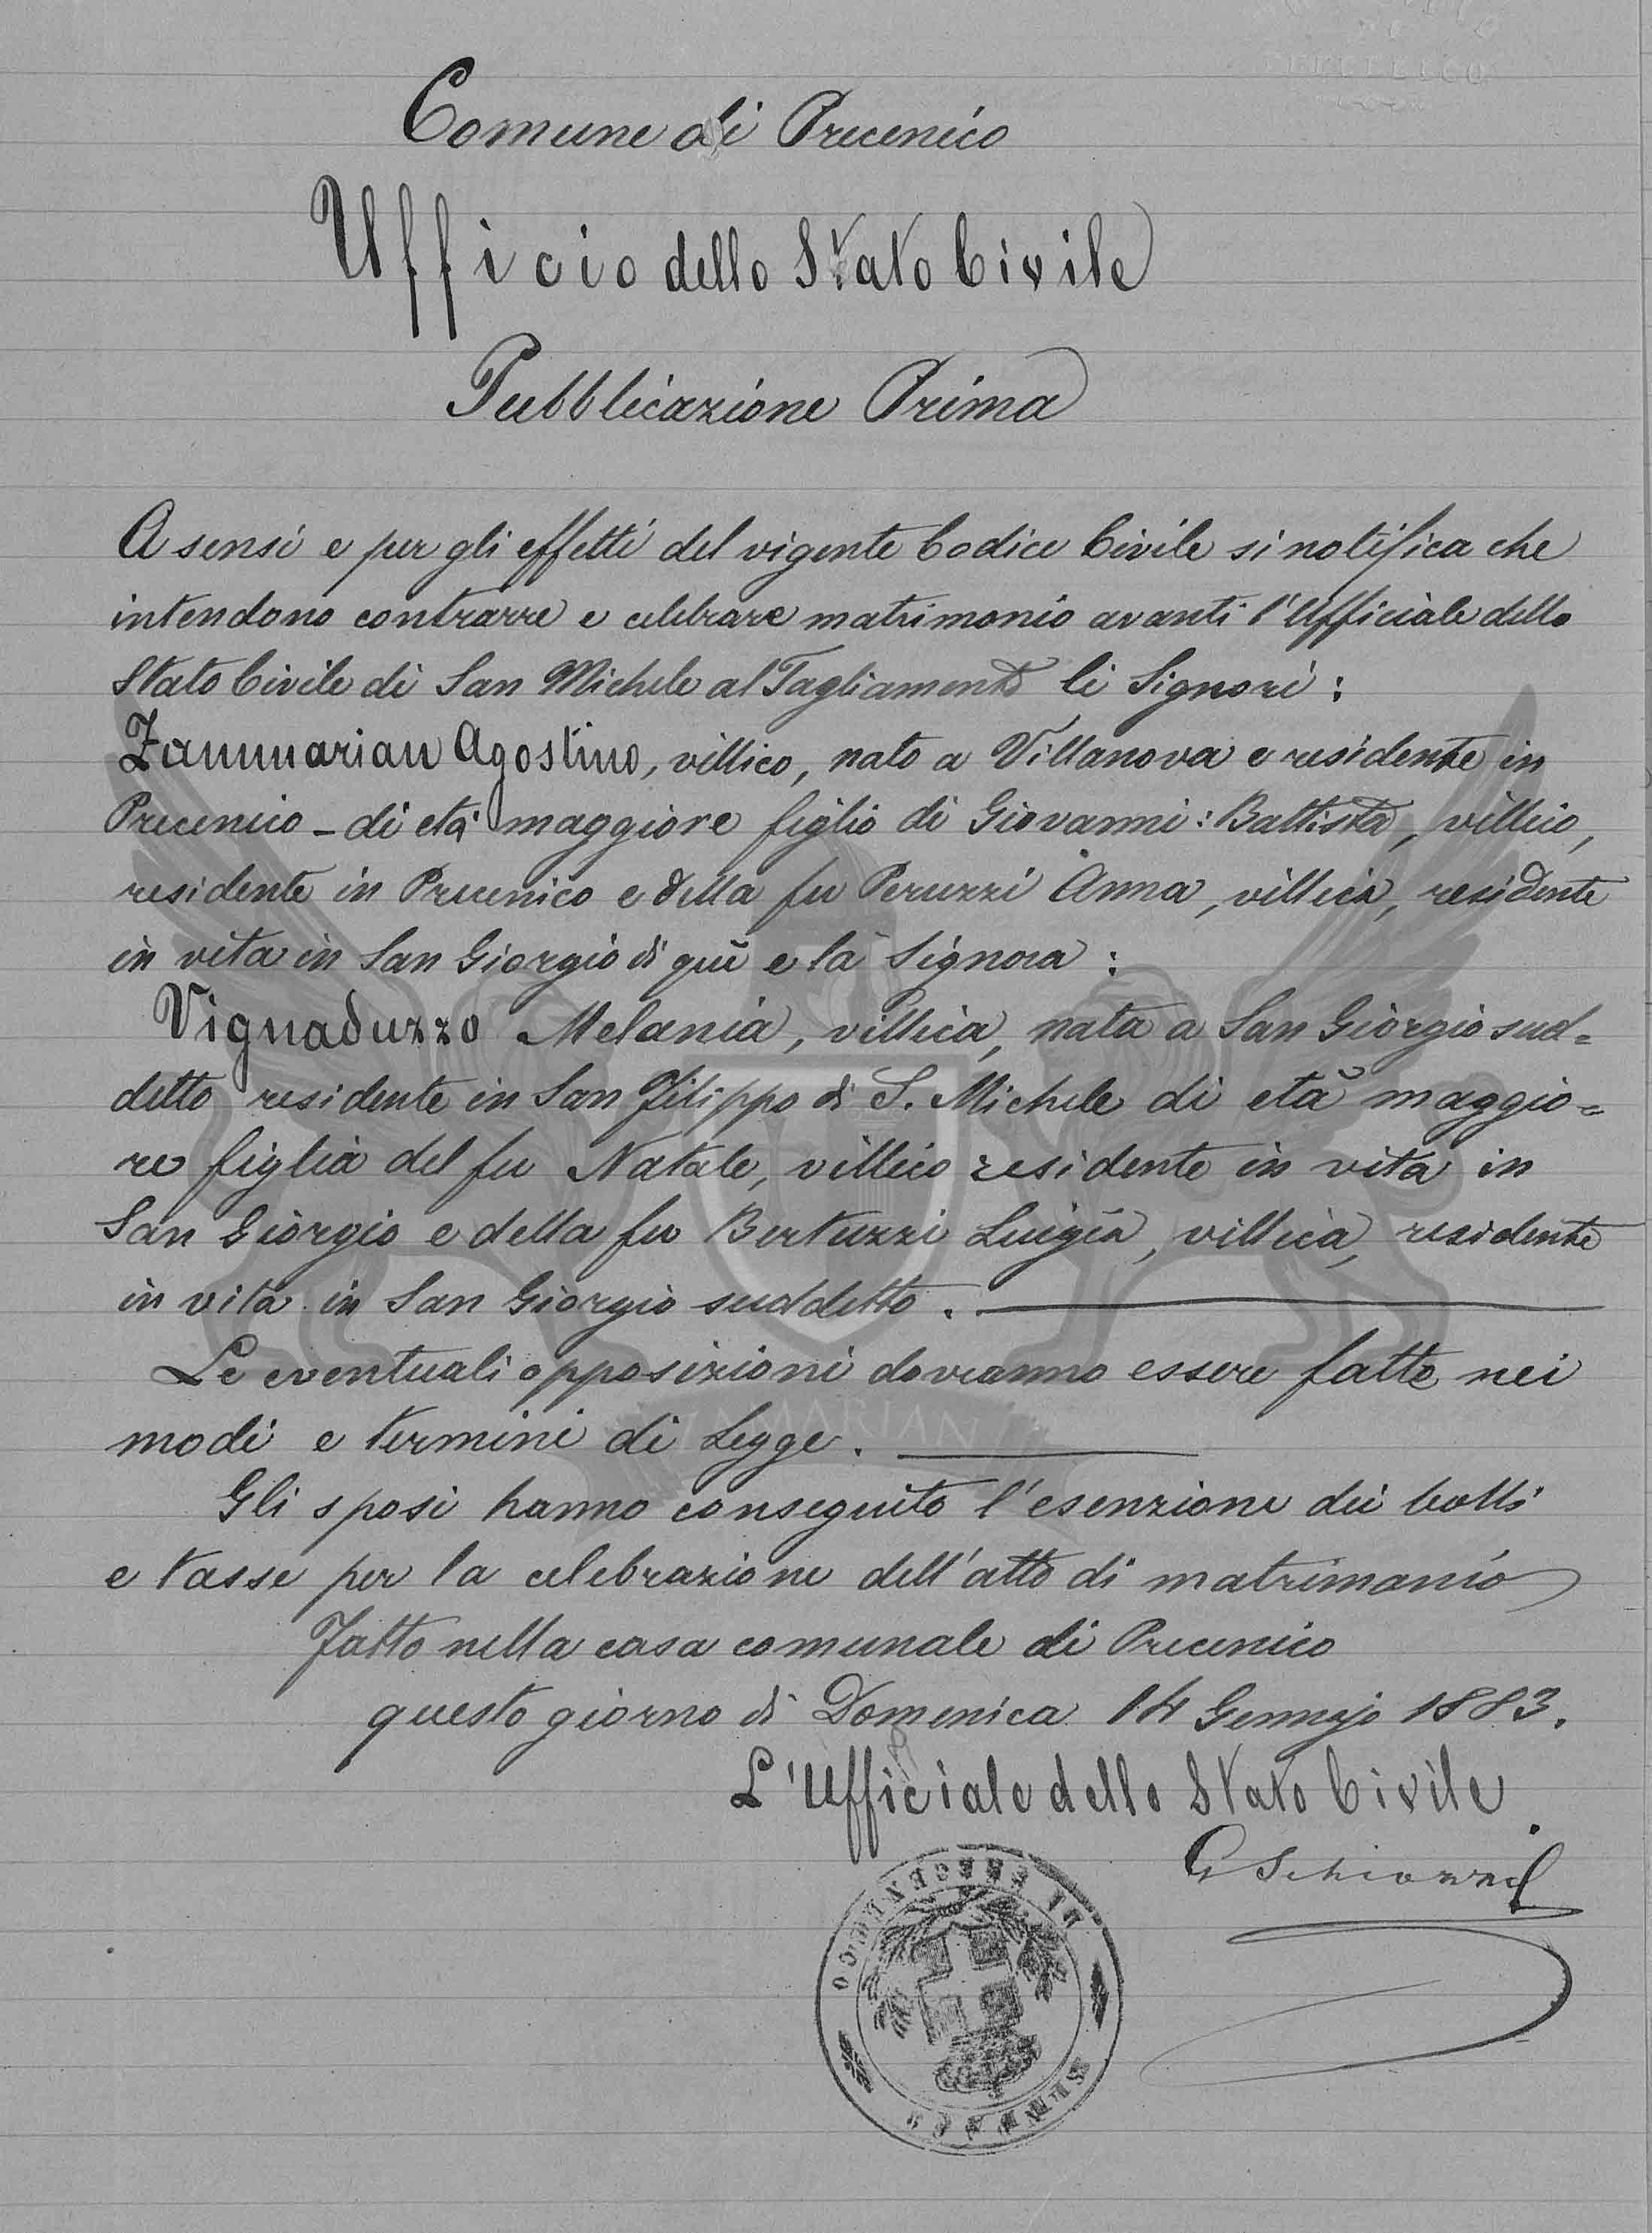 Comune di Precenico
Ufficio dello Stato Civile
Pubblicazione Prima
A sensi e per gli effetti del vigente Codice Civile si notifica che
intendono contrarre e celebrare matrimonio avanti l'Ufficiale dello
Stato Civile di San Michele al Tagliamento li Signori :
Zammarian Agostino, villico, nato a Villanova e residente in
Precenico - di età maggiore figlio di Giovanni : Battista, villico,
residente in Precenico e della fu Peruzzi Anna, villica, residente
in vita in San Giorgio di quì e la Signora :
Vignaduzzo Melania, villica, nata a San Giorgio sud=
detto residente in San Filippo di S. Michele di età maggio=
re figlia del fu Natale, villico residente in vita in
San Giorgio e della fu Bertuzzi Luigia, villica, residente
in vita in San Giorgio suddetto .
Le eventuali opposizioni dovranno essere fatte nei
modi e termini di Legge .
ZAMARIAN
Gli sposi hanno conseguito l'esenzione dei bolli
e tasse per la celebrazione dell'atto di matrimonio
Fatto nella casa comunale di Precenico
questo giorno di Domenica 14 Gennajo 1883.
L'Ufficiale dello Stato Civile
G Schiozzi
DI PRECENICCO
SINDACO